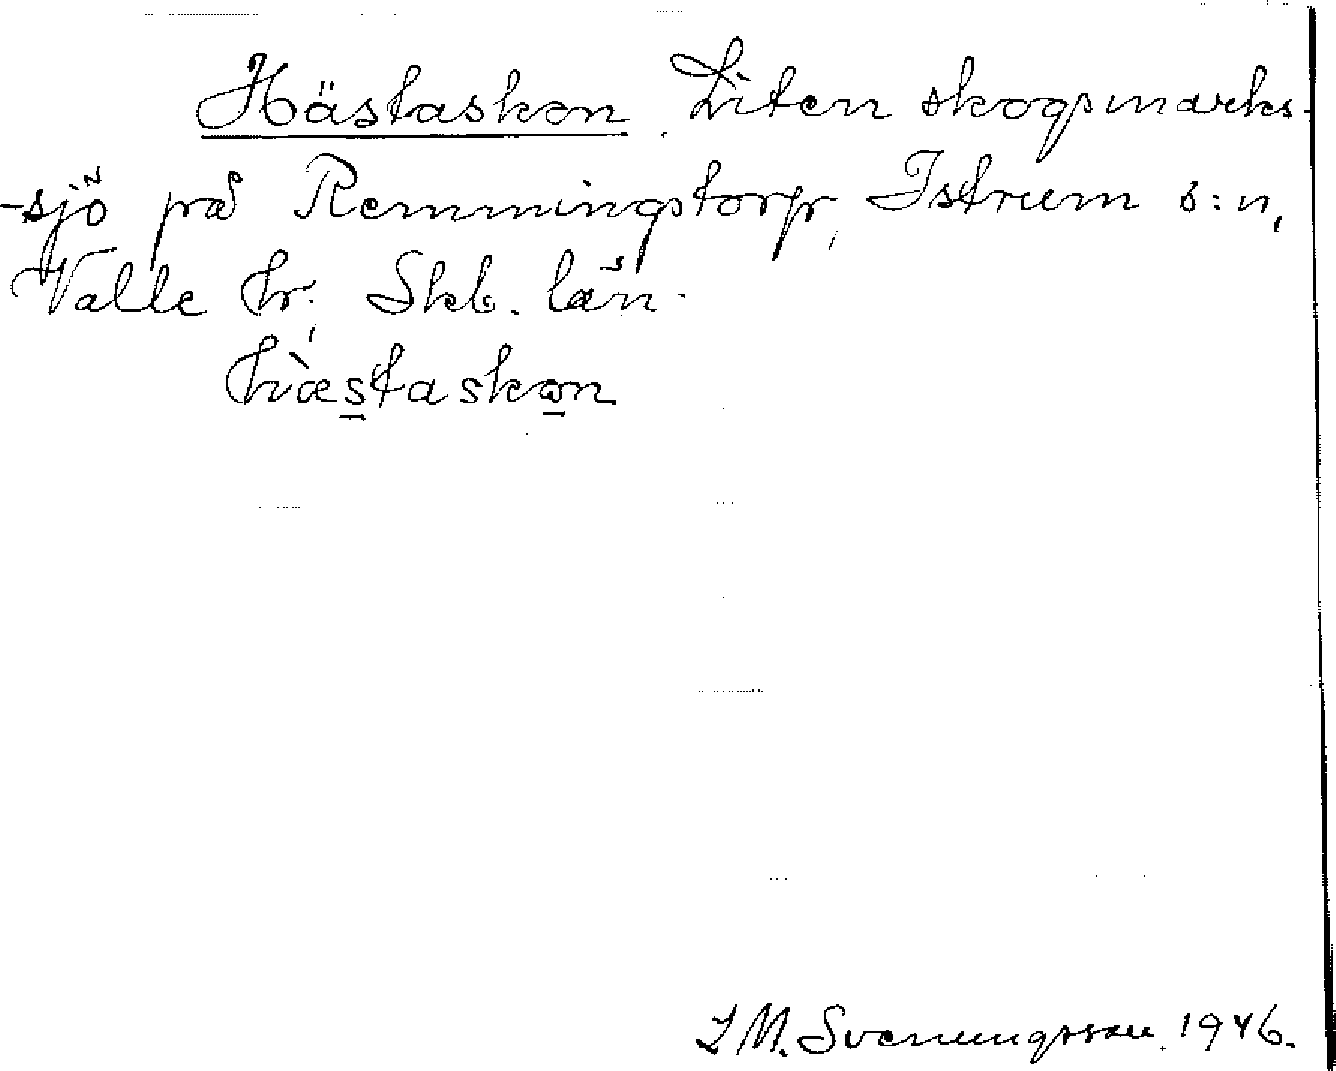 Hästaskon. Liten skogsmarks-
-sjö på Remmingstorp, Istrum s:n,
Valle hr. Skb. län.
hæ̀staskon
I M. Svenungsson. 1946.